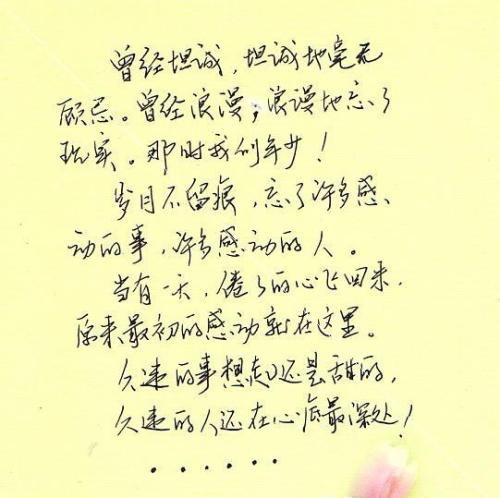 曾经坦诚，坦诚地毫无
顾忌。曾经浪漫，浪漫地忘了
现实。那时我们年少！
岁月不留痕，忘了许多感
动的事，许多感动的人。
当有一天，倦了的心飞回来，
原来最初的感动就在这里。
久违的事想起还是甜的，
久违的人还在心底最深处！
······